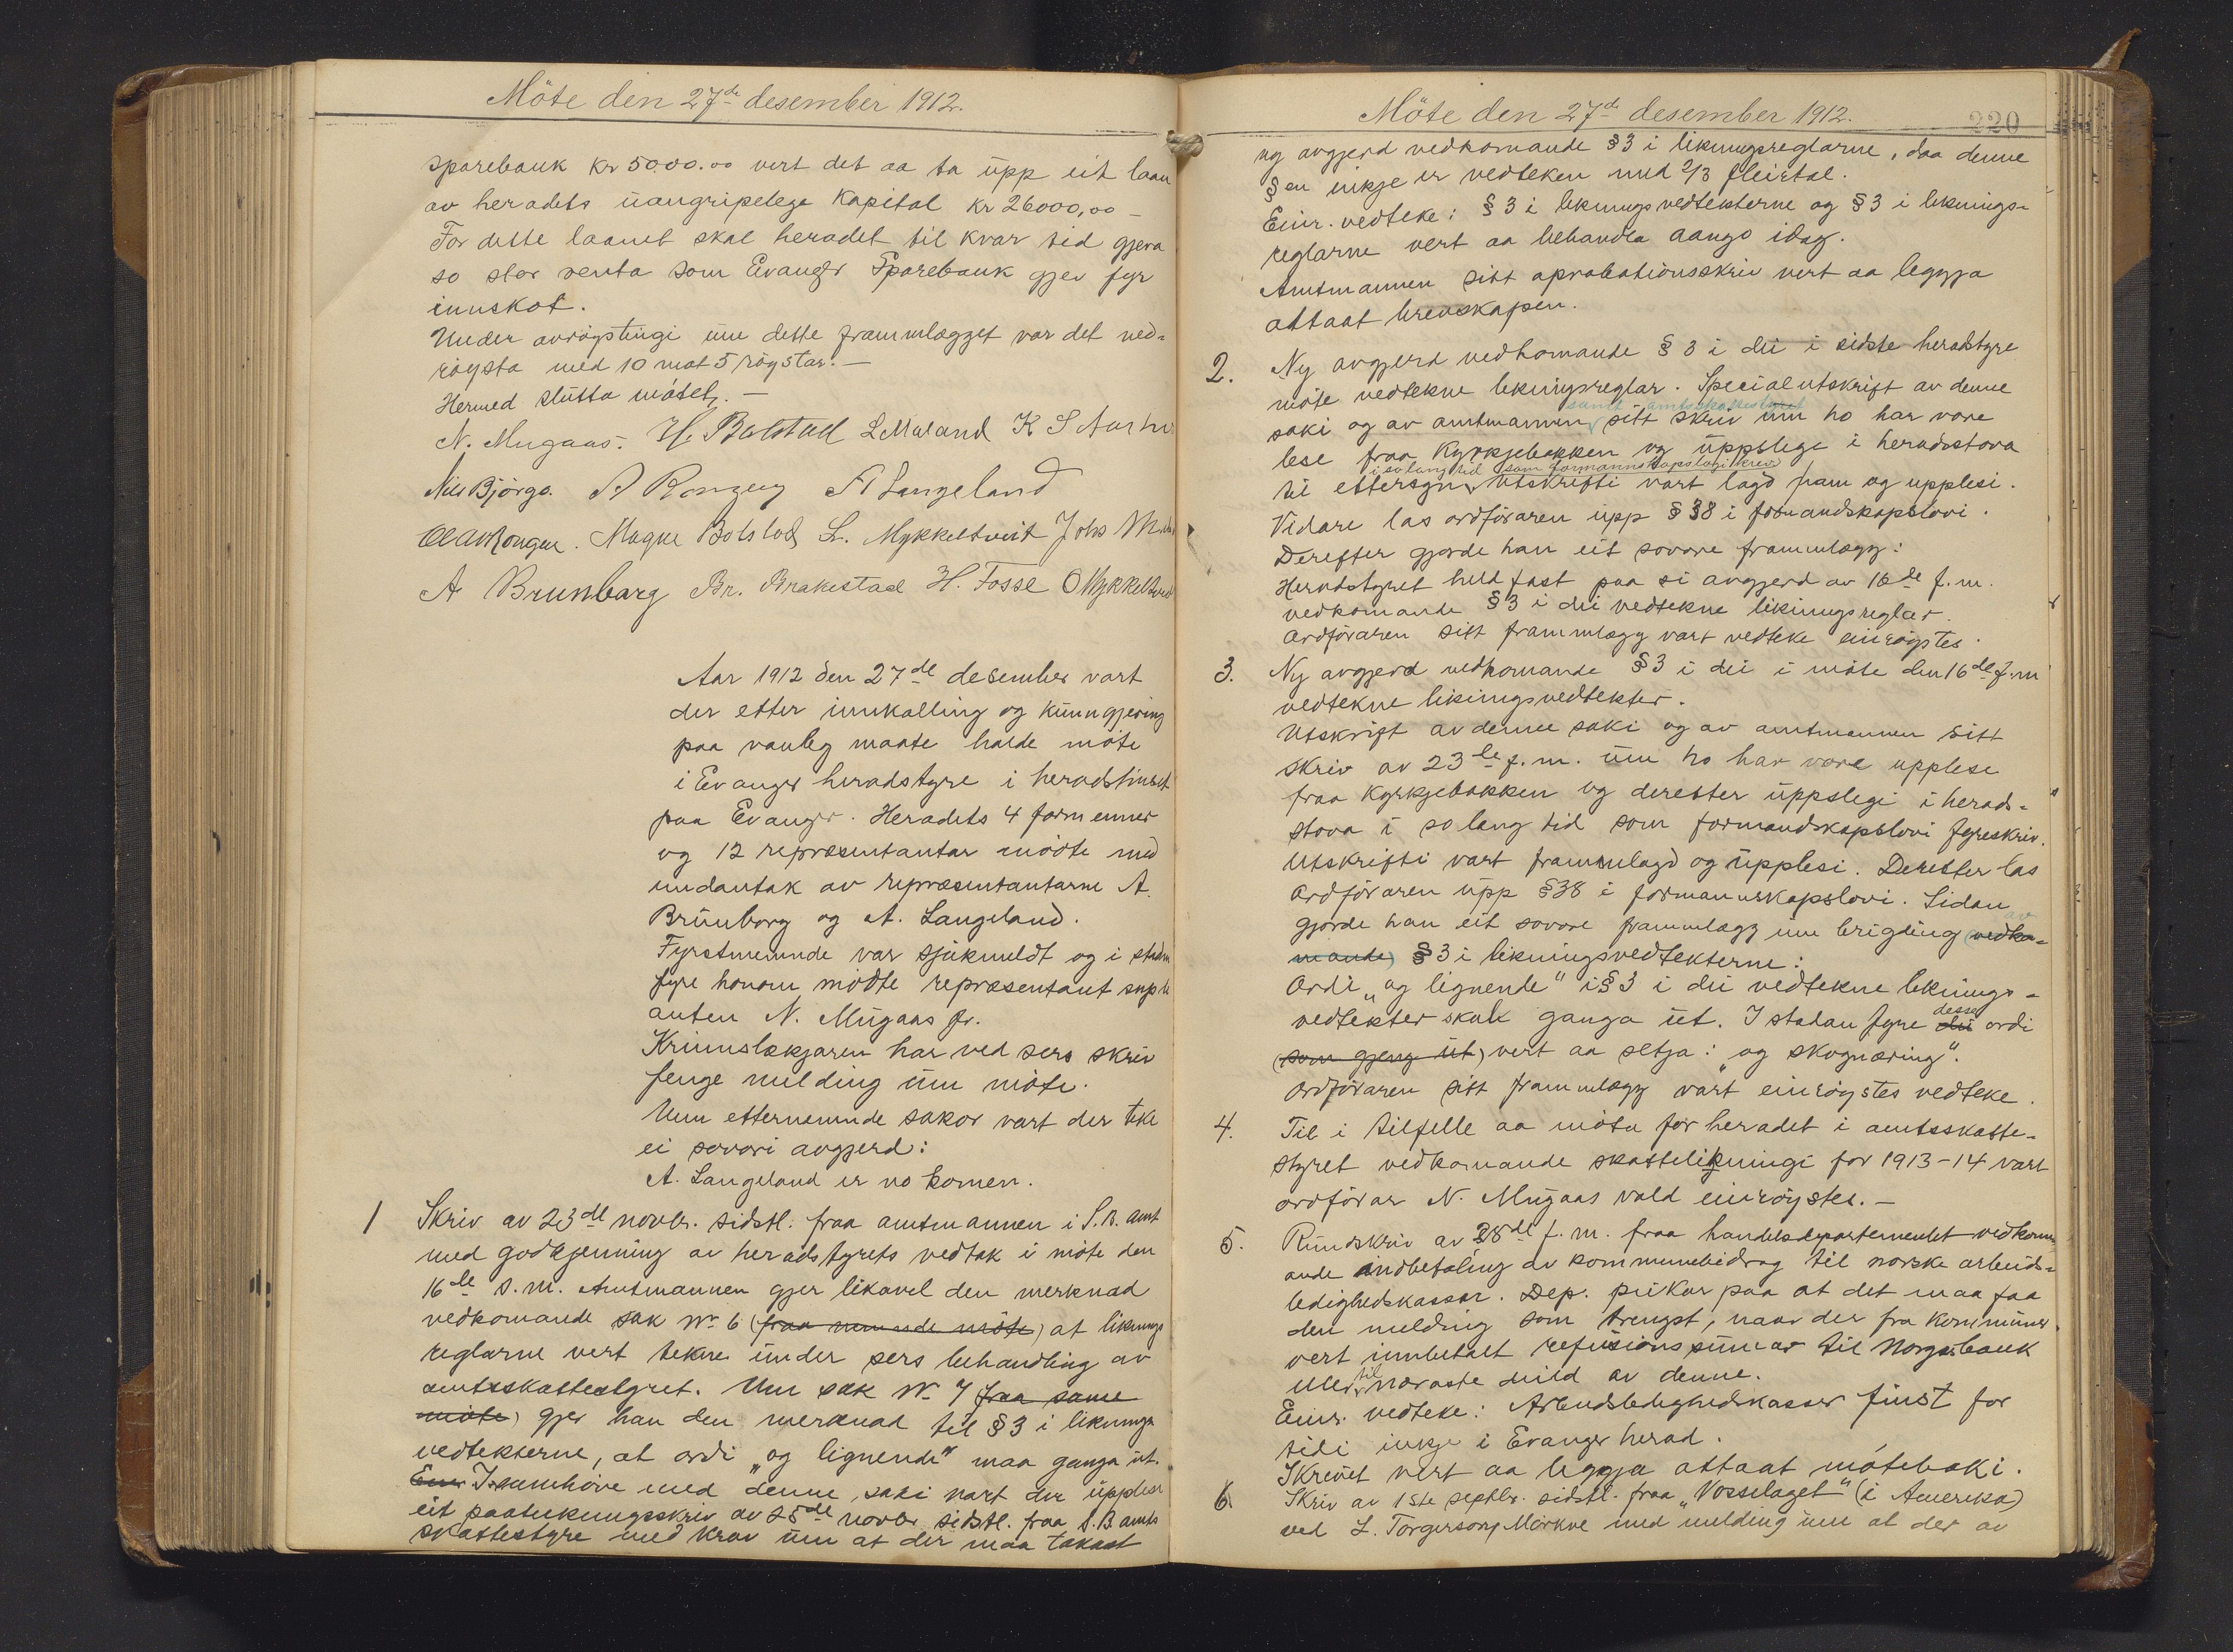 Möte den 27de desember 1912.
sparebank Kr 5000.00 vert det aa ta upp eit laan
av heradets uangripelege Kapital Kr 26000,00 –
For dette laanet skal heradet til kvar tid gjeva
so stor renta som Evanger Sparebank gjev fyr
innskot.
Under avröystingi um dette frammlægget var det ned-
röysta med 10 mot 5 röystar. –
Hermed slutta mötet. –
N. Mugaas. H. Bolstad L Mæland K S Aarhu
Nils Björgo. A Rongey A Langeland
Ol A Rongen. Magne Bolstad L. Mykkeltveit Johs
A Brunborg Br. Brakestad H. Fosse O Mykkeltvedt
Aar 1912 den 27de desember vart
der etter innkalling og kunngjering
paa vanleg maate halde möte
i Evanger heradstyre i heradshuset
paa Evanger. Heradets 4 formenner
og 12 repræsentantar mödte med
undantak av repræsentantarne A.
Brunborg og A. Langeland.
Fyrstnemnde var sjukmeldt og i staden
fyre honom mödte repræsentant suple
anten N. Mugaas jr.
Krinslækjaren har ved sers skriv
fenge melding um möte.
Um etternemnde sakor vart der teke
ei sovori avgjerd:
A. Langeland er no komen.
1 Skriv av 23de novbr. sidstl. fraa amtmannen i S.B. amt
med godkjenning av heradstyrets vedtak i möte den
16de s.m. Amtmannen gjer likavel den merknad
vedkomande sak No 6 (fraa nemnde möte) at liknings
reglarne vert tekne under sers behandling av
amtsskattestyret. Um sak No 7 fraa same
möte) gjer han den merknad til §3 i liknings
vedtekterne, at ordi „og lignende" maa ganga ut.
Einr I samhöve med denne saki vart der upplese
eit paateikningsskriv av 25de novbr sidstl. fraa S.B. amts
skattestyre med krav um at der maa takast
Möte den 27de desember 1912. 220
ny avgjerd vedkomande §3 i likningsreglarne, daa denne
§en inkje er vedteken med 2/3 fleirtal.
Einr. vedteke: §3 i likningsvedtekterne og §3 i liknings-
reglarne vert aa behandla aango idag.
Amtmannen sitt aprobationsskriv vert aa leggja
attaat brevskapen.
2. Ny avgjerd vedkomande §3 i dei i sidste heradstyre
möte vedtekne likningsreglar. Specialutskrift av denne
samt amtsskattestyret
saki og av amtmannen sitt skriv um ho har vore
lese fraa Kyrkjebakken og uppslege i heradsstova
i so lang tid som formannskapslovi krev
til ettersyn. Utskrifti vart lagd fram og upplesi.
Vidare las ordföraren upp §38 i formandskapslovi.
Derefter gjorde han eit sovore frammlægg:
Heradstyret held fast paa si avgjerd av 16de f.m.
vedkomande §3 i dei vedtekne likningsreglar.
Ordföraren sitt frammlægg vart vedteke einröystes.
3. Ny avgjerd vedkomande §3 i dei i möte den 16de f.m
vedtekne likningsvedtekter.
Utskrift av denne saki og av amtmannen sitt
skriv av 23de f.m. um ho har vore upplese
fraa Kyrkjebakken og deretter uppslegi i herads-
stova i so lang tid som formandskapslovi fyreskriv.
Utskrifti vart frammlagd og upplesi. Deretter las
Ordföraren upp §38 i formannskapslovi. Sidan
gjorde han eit sovore frammlægg um brigding (vedko- av
mande) §3 i likningsvedtekterne:
Ordi „og lignende" i §3 i dei vedtekne liknings-
vedtekter skal ganga ut. I stadan fyre dei desse ordi
(som gjeng ut) vert aa setja: „og skognæring".
Ordföraren sitt frammlægg vart einröystes vedteke.
4. Til i tilfelle aa möta for heradet i amtsskatte-
styret vedkomande skattelikningi for 1913–14 vart
ordförar N. Mugaas vald einröystes. –
5. Rundskriv av 28de f.m. fraa handelsdepartementet vedkom-
ande indbetaling av kommunebidrag til norske arbeids-
ledighedskassar. Dep. peikar paa at det maa faa
den melding som trengst, naar der fra kommuner
vert innbetalt refusionssumar til Norgesbank
eller til næraste deild av denne.
Einr. vedteke: Arbeidsledighedskasser finst for
tidi inkje i Evanger herad.
Skrivet vert aa leggja attaat möteboki.
6. Skriv av 1ste septbr. sidstl. fraa „Vosselaget" (i Amerika)
ved L. Torgerson Mörkve med melding um at der av